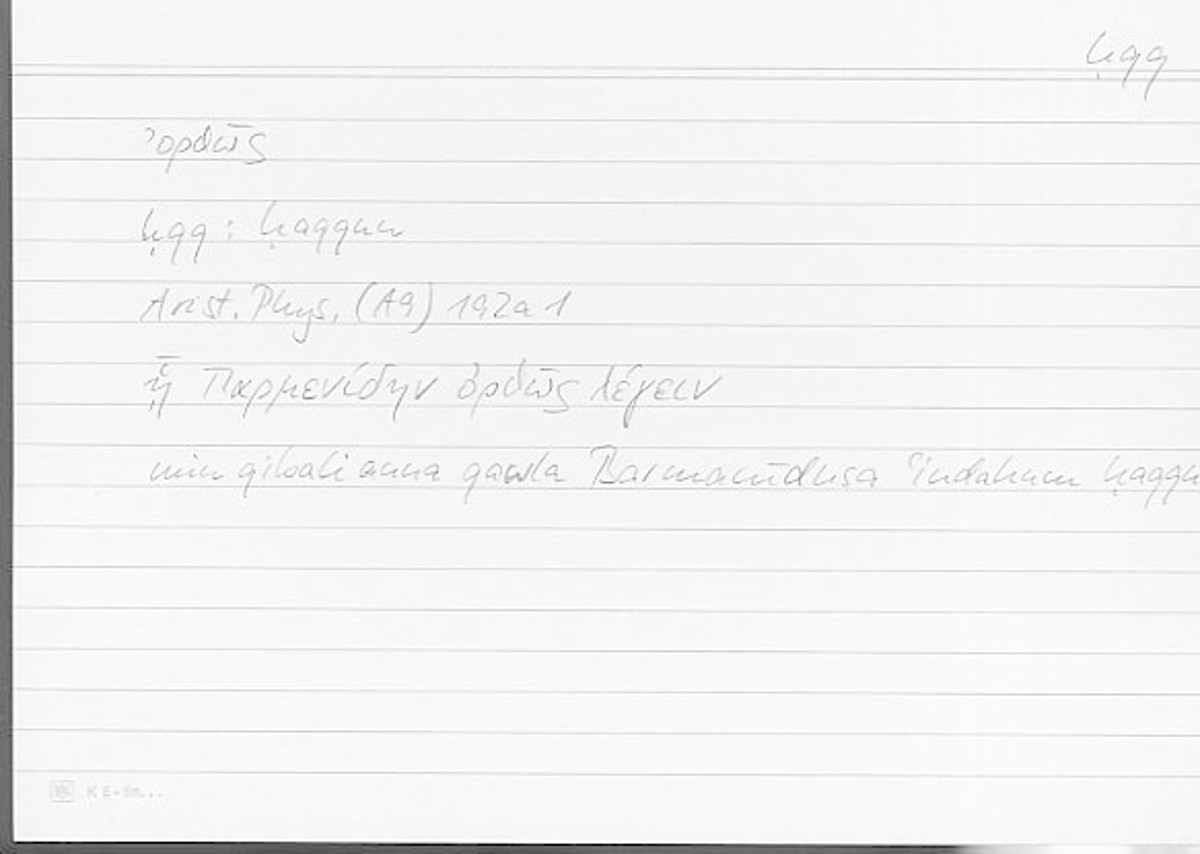 ḥqq
ὀρθῶς
ḥqq : ḥaqqun
Arist. Phys. (A9) 192a1
ᾗ Παρμενίδην ὀρθῶς λέγειν
min qibali anna qawla Barmanīdusa ʿindahum ḥaqqu